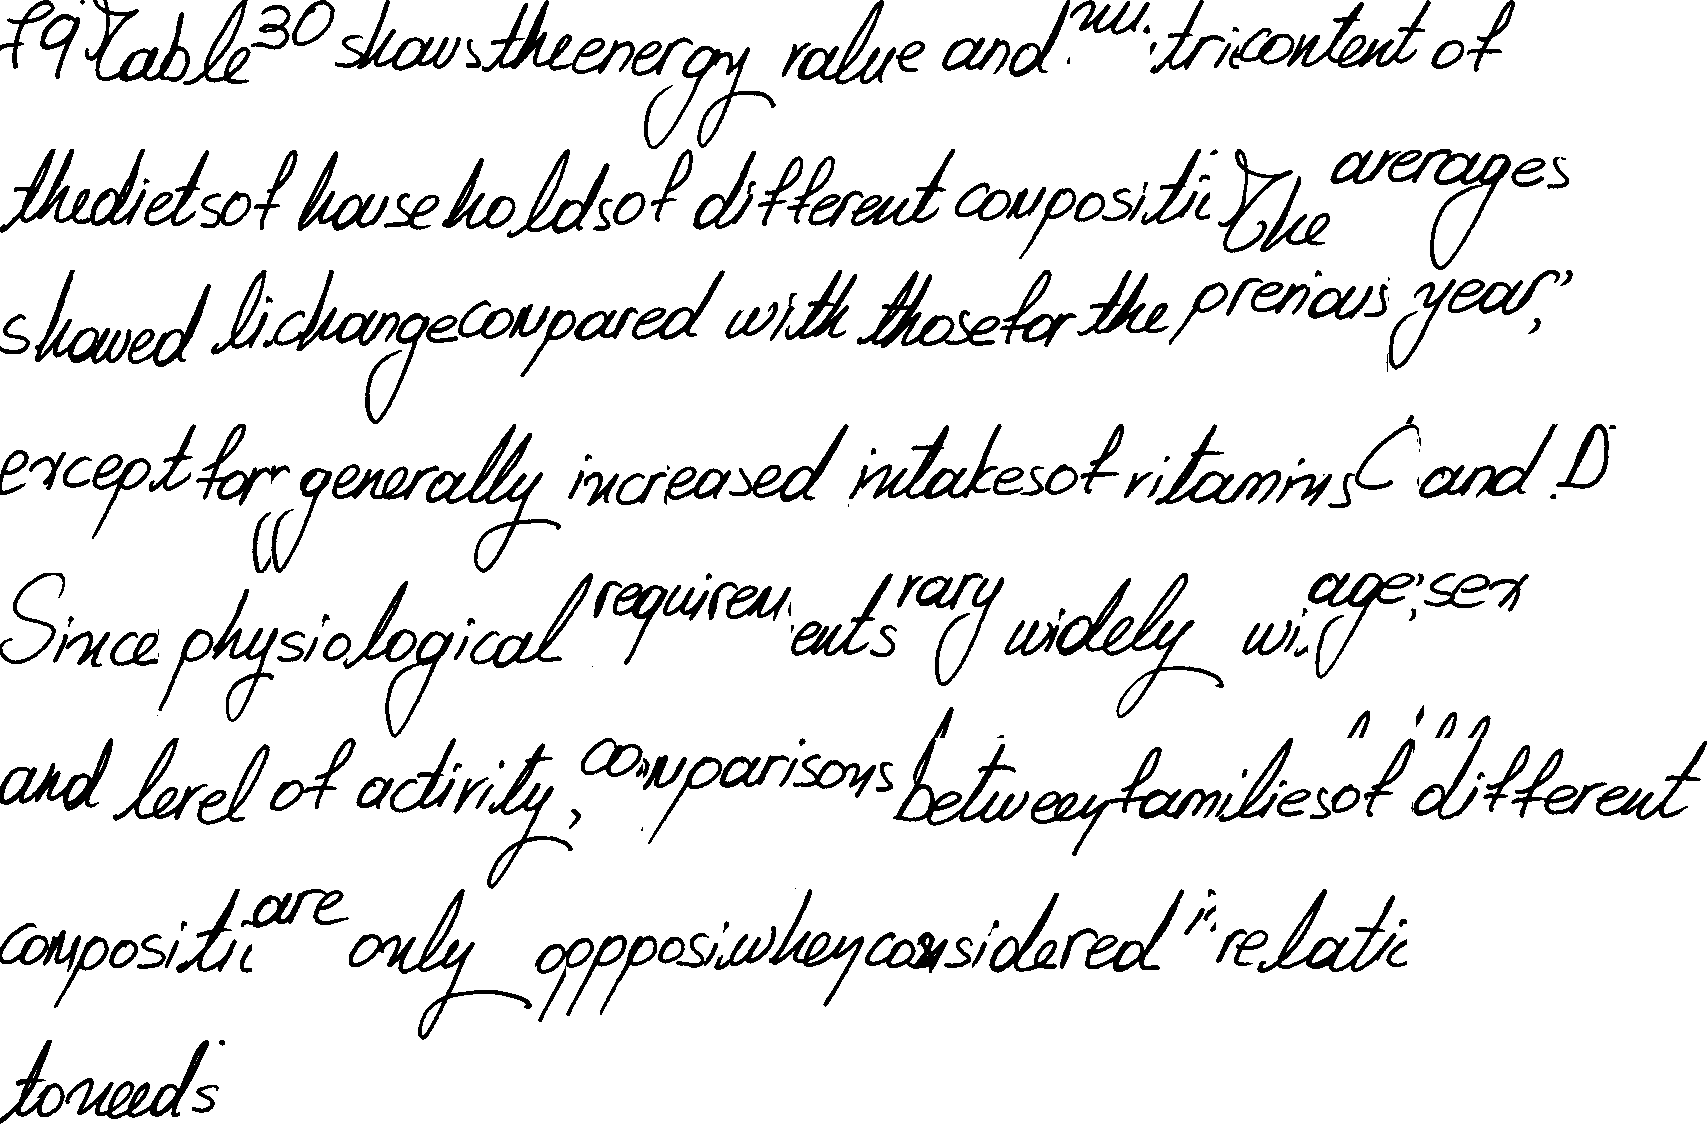 79 Table 30 shows the energy value and nutricontent of
the diets of households of different compositi The averages
showed li change compared with those for the previous year,
except for generally increased intakes of vitamins C and D
Since physiological requirements vary widely wi age, sex
and level of activity, comparisons between families of different
compositi are only when considered in relati
to needs